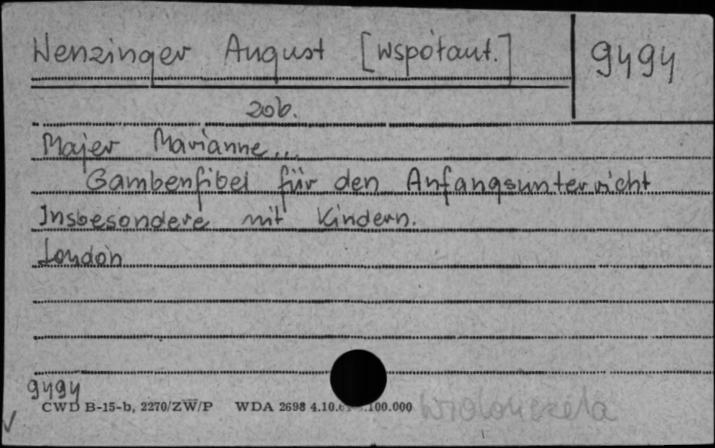 Wenzinger August [współaut.] 9494
zob.
Majer Marianne...
Gambenfibel für den Anfangsunterricht
Insbesondere mit Kindern.
London
9494
CWD B-15-b, 2270/ZW/P WDA 2698 4.10. .100.000
Wiolonczela